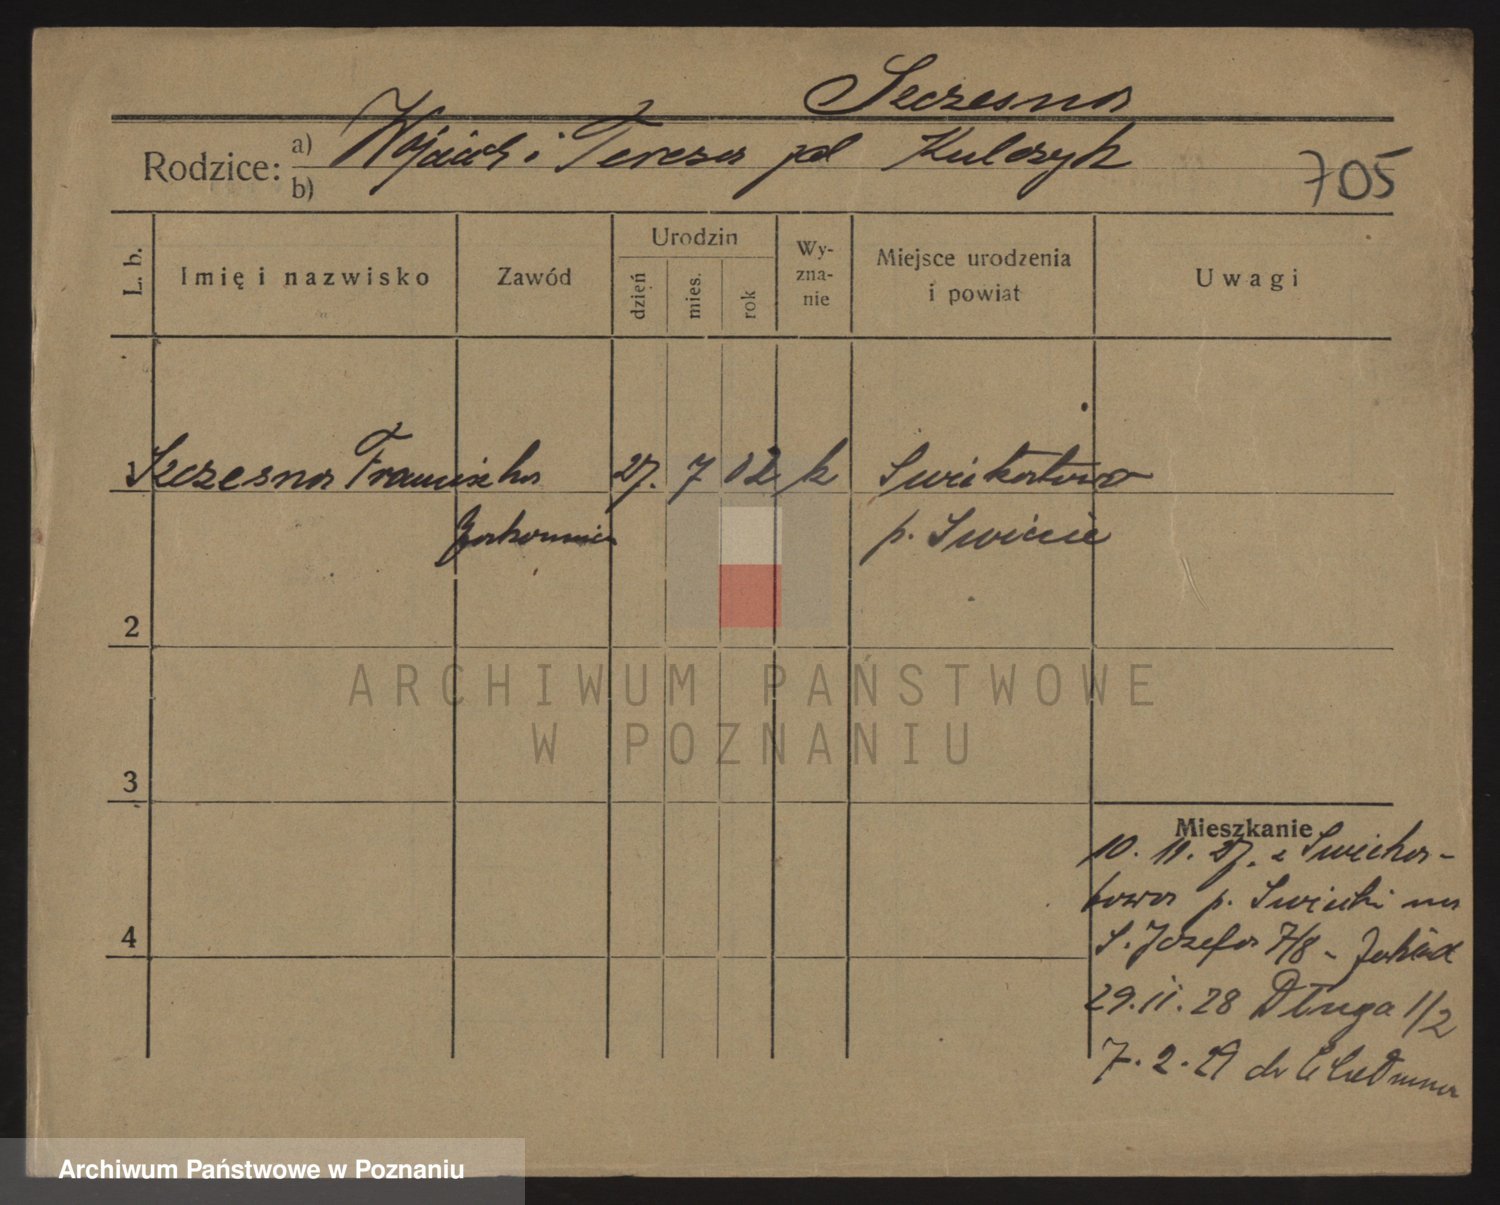 Szczesna
Rodzice: a) Wojciech i Teresa zd Kulczyk
b)
705
L. b. Imię i nazwisko Zawód Urodzin dzień mies. rok Wy-zna-nie Miejsce urodzenia i powiat Uwagi
1 Szczesna Franciszka 27. 7 02 k Swiekatowo
p. Swiecie
2
3
4
Mieszkanie
10. 11. 27. z Swieka-
towa p. Swiecki na
S. Józefa 7/8 -
29.11.28 Długa 1/2
7. 2. 29 do Chełmna
ARCHIWUM PAŃSTWOWE
W POZNANIU
Archiwum Państwowe w Poznaniu